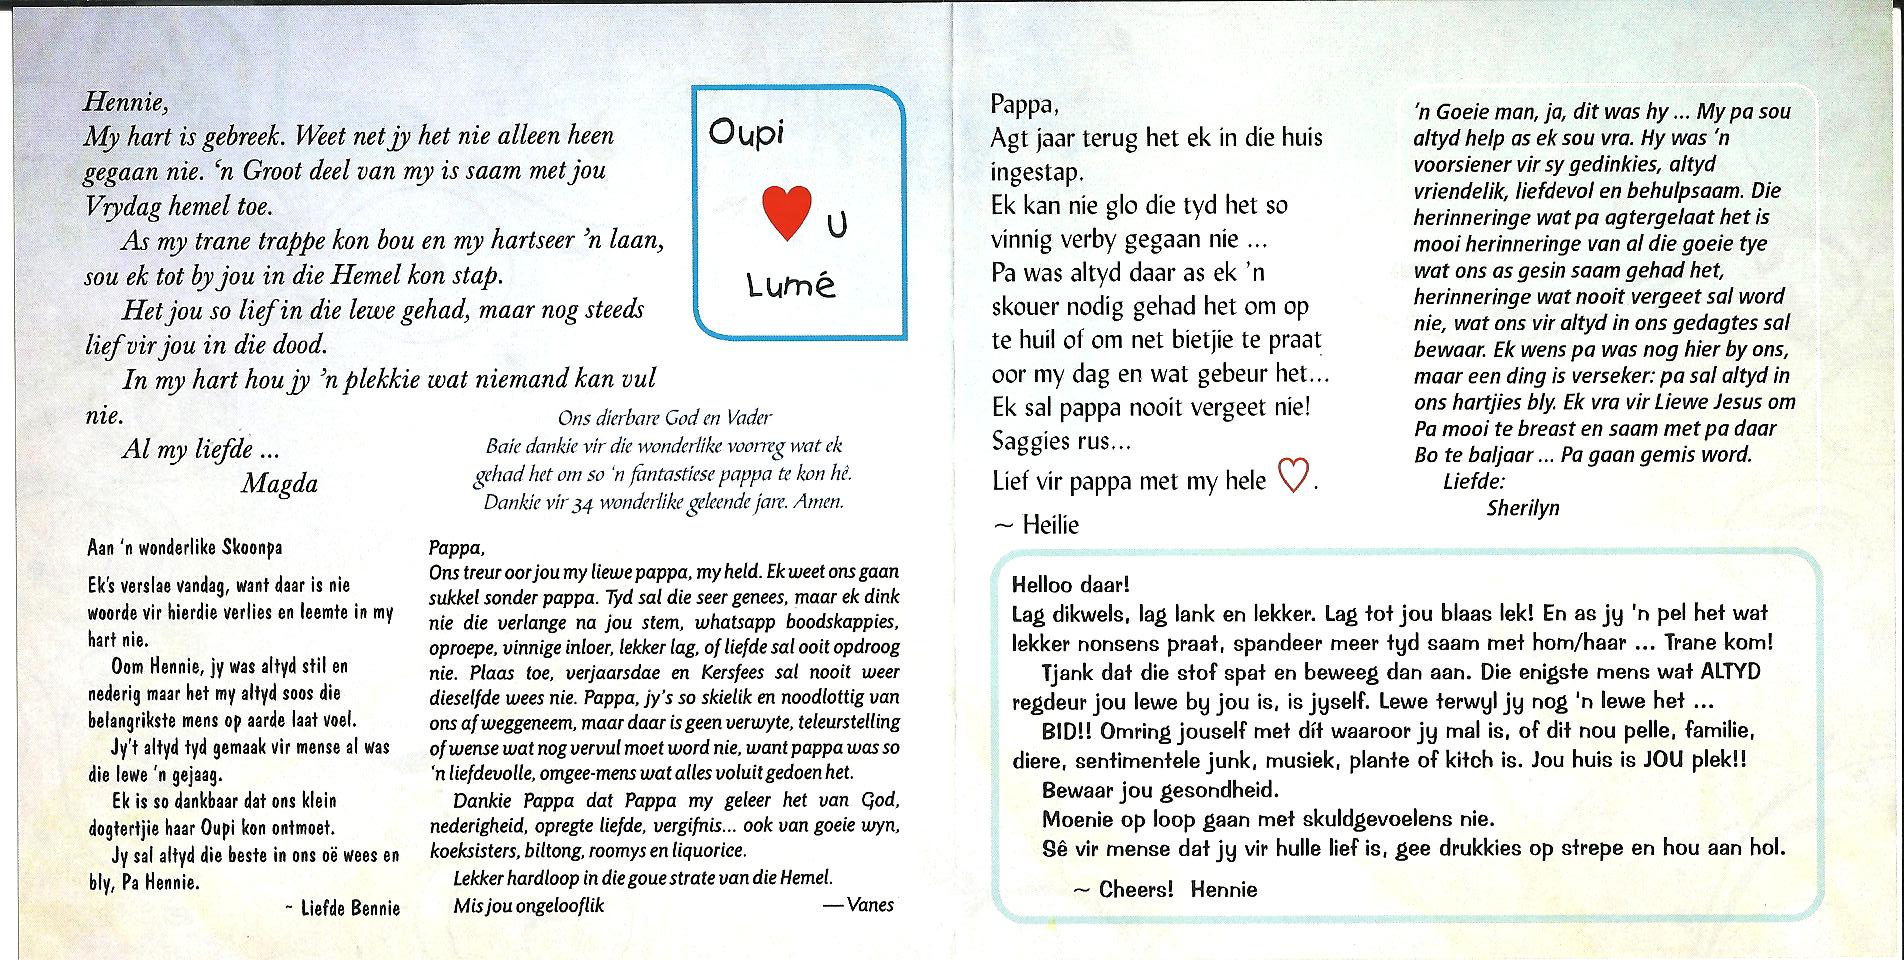 Hennie,
My hart is gebreek. Weet net jy het nie alleen heen
gegaan nie. ‘n Groot deel van my is saam met jou
Vrydag hemel toe.
As my trane trappe kon bou en my hartseer ’n laan,
sou ek tot by jou in die Hemel kon stap.
Het jou so lief in die lewe gehad, maar nog steeds
lief vir jou in die dood.
In my hart hou jy ’n plekkie wat niemand kan vul
nie.
Al my liefde ...
Magda
Oupi
♥ U
Lumé
Ons dierbare God en Vader
Baie dankie vir die wonderlike voorreg wat ek
gehad het om so ‘n fantastiese pappa te kon hê.
Dankie vir 34 wonderlike geleende jare. Amen.
Aan ‘n wonderlike Skoonpa
Ek’s verslae vandag, want daar is nie
woorde vir hierdie verlies en leemte in my
hart nie.
Oom Hennie, jy was altyd stil en
nederig maar het my altyd soos die
belangrikste mens op aarde laat voel.
Jy’t altyd tyd gemaak vir mense al was
die lewe ‘n gejaag.
Ek is so dankbaar dat ons klein
dogtertjie haar Oupi kon ontmoet.
Jy sal altyd die beste in ons oë wees en
bly, Pa Hennie.
~ Liefde Bennie
Pappa,
Ons treur oor jou my liewe pappa, my held. Ek weet ons gaan
sukkel sonder pappa. Tyd sal die seer genees, maar ek dink
nie die verlange na jou stem, whatsapp boodskappies,
oproepe, vinnige inloer, lekker lag, of liefde sal ooit opdroog
nie. Plaas toe, verjaarsdae en Kersfees sal nooit weer
dieselfde wees nie. Pappa, jy’s so skielik en noodlottig van
ons af weggeneem, maar daar is geen verwyte, teleurstelling
of wense wat nog vervul moet word nie, want pappa was so
‘n liefdevolle, omgee-mens wat alles voluit gedoen het.
Dankie Pappa dat Pappa my geleer het van God,
nederigheid, opregte liefde, vergifnis... ook van goeie wyn,
koeksisters, biltong, roomys en liquorice.
Lekker hardloop in die goue strate van die Hemel.
Mis jou ongelooflik —Vanes
Pappa,
Agt jaar terug het ek in die huis
ingestap.
Ek kan nie glo die tyd het so
vinnig verby gegaan nie ...
Pa was altyd daar as ek ’n
skouer nodig gehad het om op
te huil of om net bietjie te praat
oor my dag en wat gebeur het...
Ek sal pappa nooit vergeet nie!
Saggies rus...
Lief vir pappa met my hele ♡.
~ Heilie
‘n Goeie man, ja, dit was hy ... My pa sou
altyd help as ek sou vra. Hy was ‘n
voorsiener vir sy gedinkies, altyd
vriendelik, liefdevol en behulpsaam. Die
herinneringe wat pa agtergelaat het is
mooi herinneringe van al die goeie tye
wat ons as gesin saam gehad het,
herinneringe wat nooit vergeet sal word
nie, wat ons vir altyd in ons gedagtes sal
bewaar. Ek wens pa was nog hier by ons,
maar een ding is verseker: pa sal altyd in
ons hartjies bly. Ek vra vir Liewe Jesus om
Pa mooi te breast en saam met pa daar
Bo te baljaar ... Pa gaan gemis word.
Liefde:
Sherilyn
Helloo daar!
Lag dikwels, lag lank en lekker. Lag tot jou blaas lek! En as jy 'n pel het wat
lekker nonsens praat, spandeer meer tyd saam met hom/haar ... Trane kom!
Tjank dat die stof spat en beweeg dan aan. Die enigste mens wat ALTYD
regdeur jou lewe by jou is, is jyself. Lewe terwyl jy nog 'n lewe het ...
BID!! Omring jouself met dít waaroor jy mal is, of dit nou pelle, familie,
diere, sentimentele junk, musiek, plante of kitch is. Jou huis is JOU plek!!
Bewaar jou gesondheid.
Moenie op loop gaan met skuldgevoelens nie.
Sê vir mense dat jy vir hulle lief is, gee drukkies op strepe en hou aan hol.
~ Cheers! Hennie